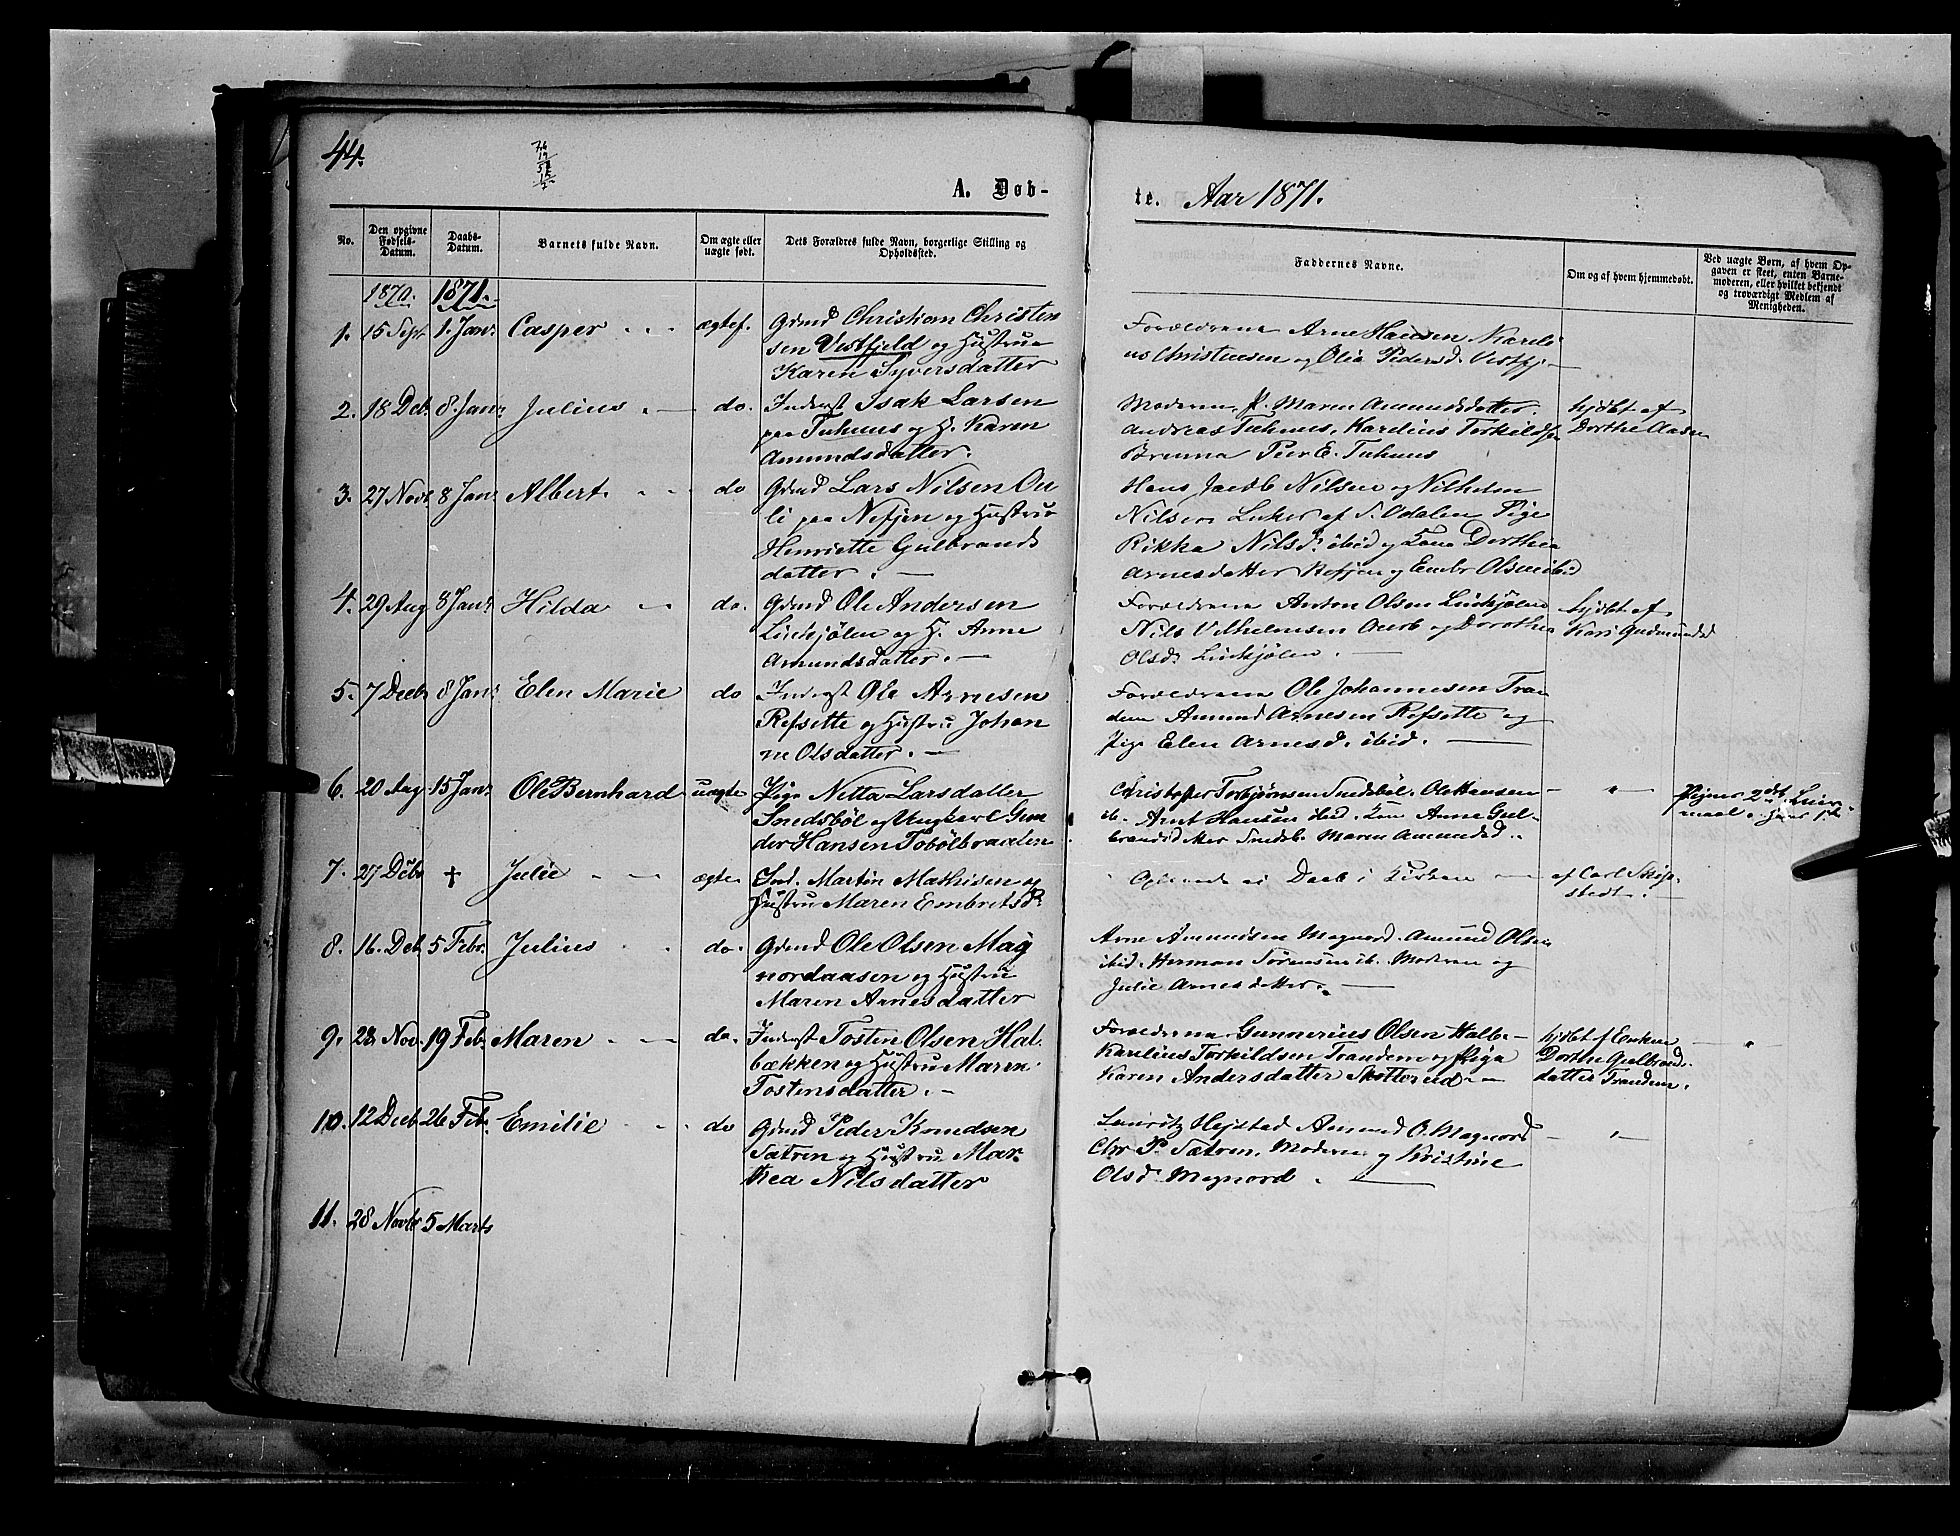 44.
A. Døb-
te. Aar 1871.
No.
Den opgivne Fødsels-Datum.
Daabs-Datum.
Barnets fulde Navn.
Om ægte eller uægte født.
Dets Forældres fulde Navn, borgerlige Stilling og Opholdssted.
Faddernes Navne.
Om og af hvem hjemmedøbt.
Ved uægte Børn, af hvem Opgaven er skeet, enten Barnemoderen, eller hvilket bekjendt og troværdigt Medlem af Menigheden.
1870. 1871.
1. 15 Sept. 1. Janr. Casper ægtef. Grmd Christian Christen
sen Vestfjeld og Hustrue
Karen Syversdatter
Forældrene Arne Hansen Kareli
us Christensen og Olia Pedersd. Vestfj
2. 18 Deb. 8. Janr Julius do. Inderst Isak Larsen
paa Tuhuus og H. Karen
Amundsdatter.
Moderen P. Maren Amundsdatter.
Andreas Tuhuus, Karelius Torkilds
Brenna Peer E. Tuhuus
hjdbt af
Dorthe Aasen
3. 27 Novr 8 Janr Albert do Grmd Lars Nilsen Ou
li paa Nefjen og Hustrue
Henriette Gulbrands
datter.
Hans Jacob Nilsen og Vilhelm
Nilsen Luker af S. Odalen Pige
Rikka Nilsdr ibid og Kone Dorthea
Arnesdatter Nefjen og Embr Olsen ibid
4. 29 Aug 8 Janr Hilda do. Grmd Ole Andersen
Linkjølen og H. Anne
Amundsdatter.
Forældrene Anton Olsen Linkjølen
Nils Vilhelmsen Overb og Dorothea
Olsdr Linkjølen.
hjdbt af
Kari Gudmundsd
5. 7 Decb 8 Janr Elen Marie do Inderst Ole Arnesen
Refsette og Hustru Johan
ne Olsdatter.
Forældrene Ole Johannesen Tran
dem Amund Arnesen Refsette og
Pige Elen Arnesd. ibid.
6. 20 Aug 15 Janr Ole Bernhard uægte Pige Netta Larsdatter
Snedsbøl og Ungkarl Gun
der Hansen Tobølbraaten
Christoffer Torbjørnsen Snedsbøl. Ole Hansen
ib. Arnt Hansen ibid. Kone Anne Gul-
brandsdatter Snedsb. Maren Amundsd.
Pigens 2det Leier-
maal
7. 27 Debr + Julie ægte Ind. Martin Mathisen og
Hustru Maren Embretsdr
Daab i Kirken
af Carl Skip-
stedt.
8. 16. Deb. 5 Febr. Julius do. Grmd Ole Olsen Mag
nordaasen og Hustru
Maren Arnesdatter
Arne Amundsen Magnord. Amund Olsen
ibid. Herman Sørensen ib. Moderen og
Julie Arnesdatter.
9. 28 Nov. 19 Feb. Maren do. Inderst Tosten Olsen Hal-
bækken og Hustru Maren
Tostensdatter.
Forældrene Gunnerius Olsen Halbe-
Karelius Torkildsen Trandem og Pige
Karen Andersdatter Skotterud
hjdbt af Enken
Dorthe Gulbrands-
datter Trandem.
10. 12 Decb 26 Feb. Emilie do Grmd Peder Knudsen
Sætren og Hustru Mar-
thea Nilsdatter
Lauritz Hejstad Amund O. Magnord
Chr P. Sætren, Moderen og Kristine
Olsd. Magnord.
11. 28 Novbr 5 Marts